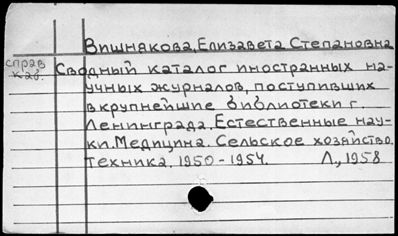 Вишнякова, Елизавета Степановна
справ
каб.
Сводный каталог иностранных на-
учных журналов, поступивших
в крупнейшие библиотеки г.
Ленинграда. Естественные нау-
ки. Медицина. Сельское хозяйство.
Техника. 1950-1954. Л., 1958